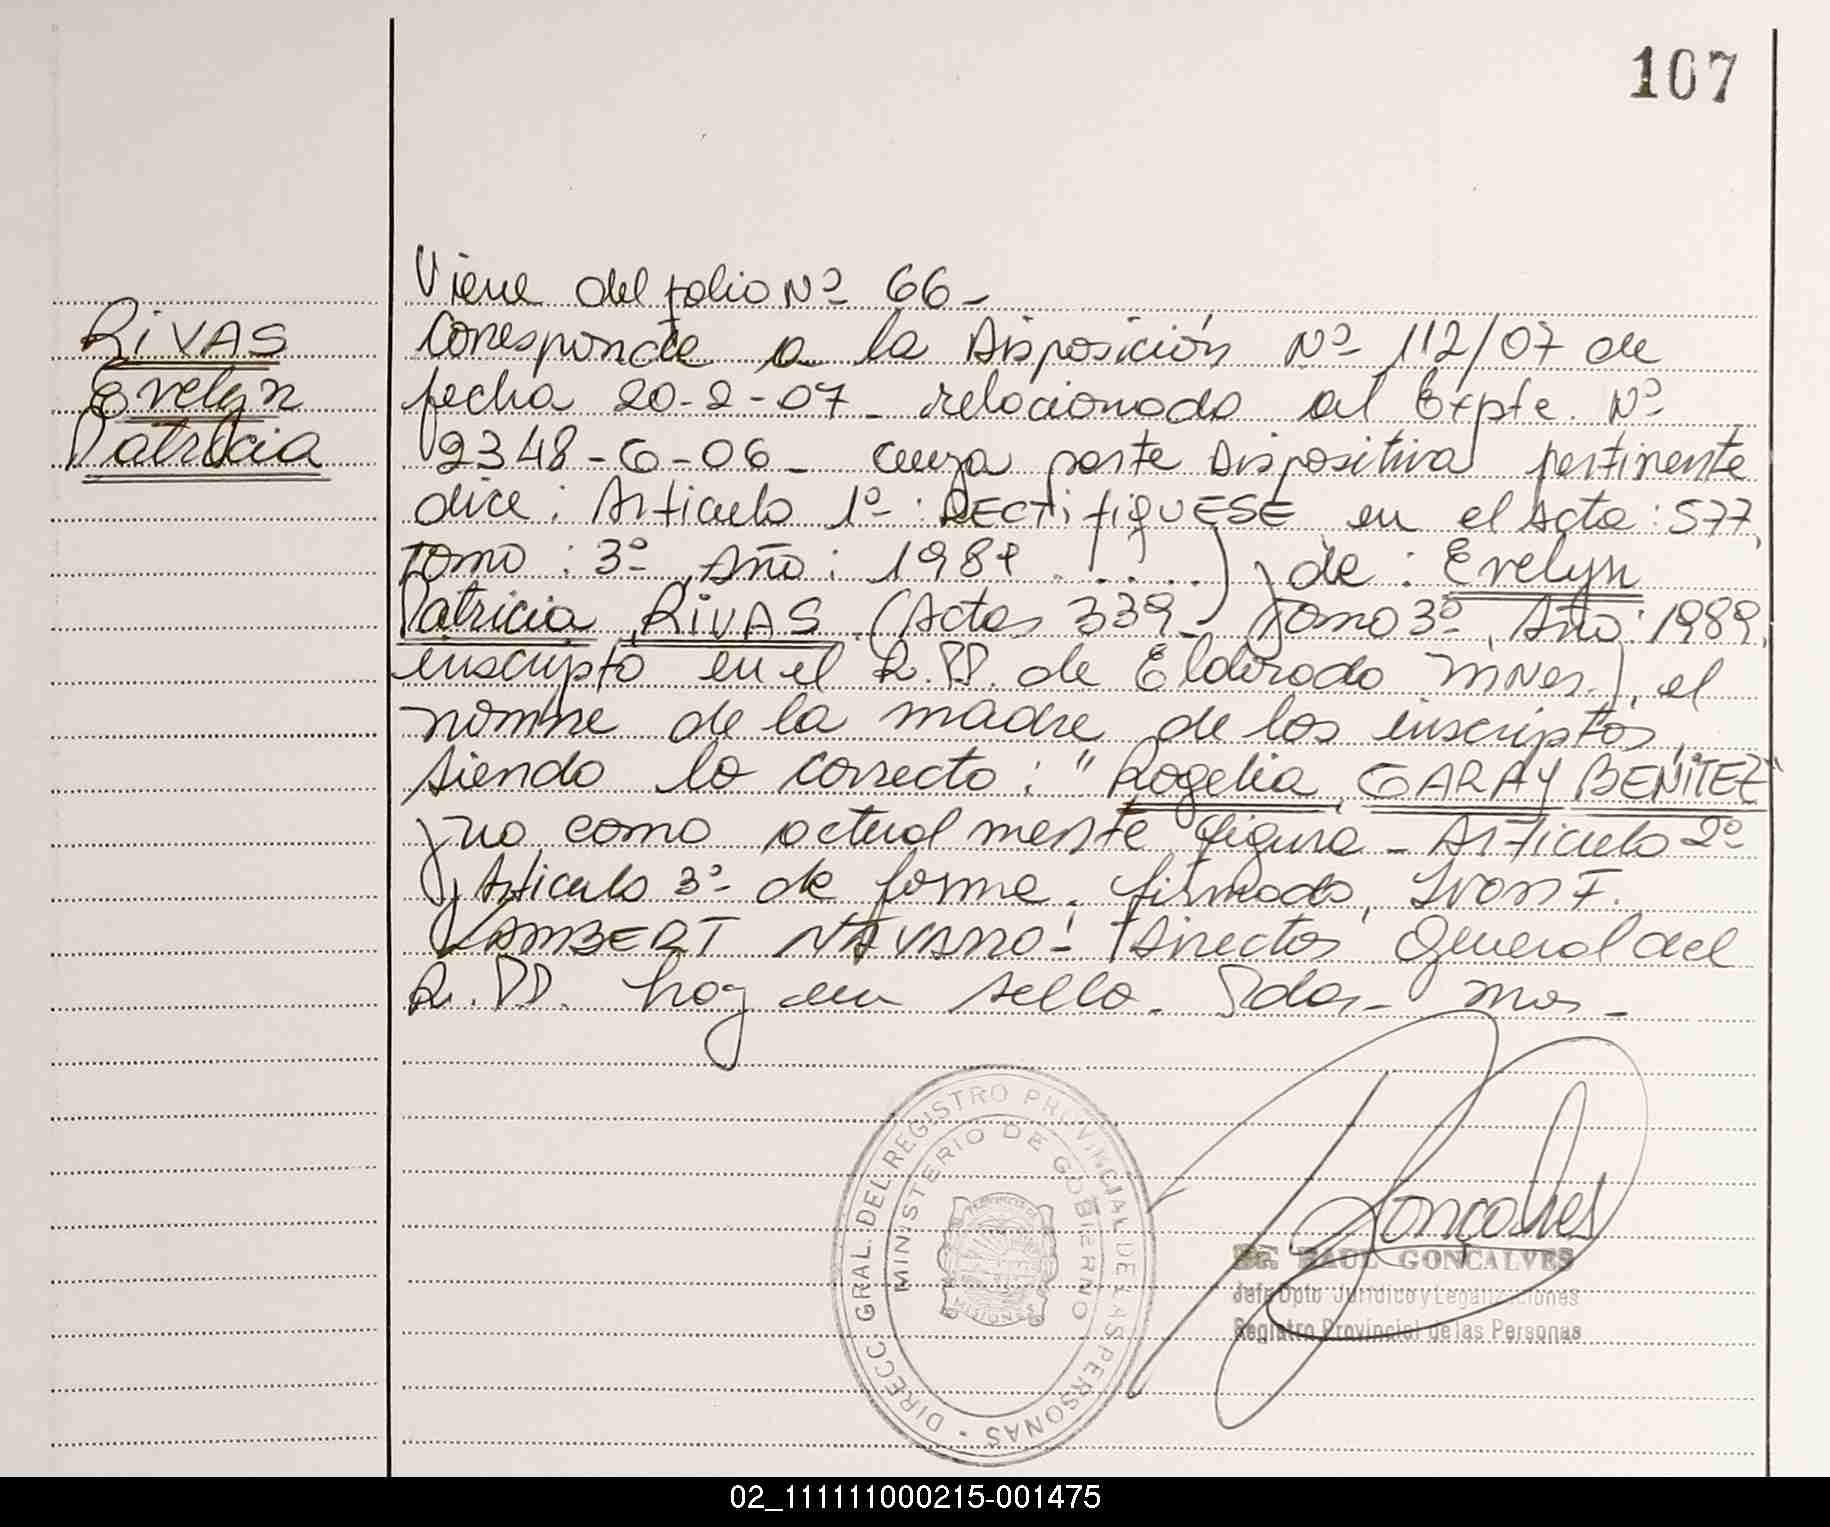 107
RIVAS
Evelyn
Patricia
Viene del folio Nº 66-
Corresponde a la Disposición Nº 112/07 de
fecha 20-2-07- relacionado al Expte. Nº
2348-G-06- cuya parte Dispositiva pertinente
dice: Articulo 1º: RECTIFIQUESE en el Acta: 577,
Tomo: 3º, Año: 198 ......) y de: Evelyn
Patricia RIVAS (Acta 339- Tomo 3º, Año: 1989,
inscripto en el R.PP. de Eldorado Mnes.), el
nombre de la madre de los inscriptos,
siendo lo correcto: "Rogelia GARAY BENITEZ"
y no como actualmente figura- Articulo 2º
y Articulo 3º- de forma. firmado, Ivon F.
LAMBERT NAVARRO- Director General del
R.PP. hay un sello. Pdas- Mnes-
DIRECC. GRAL. DEL REGISTRO PROVINCIAL DE LAS PERSONAS
MINISTERIO DE GOBIERNO
MISIONES
Goncalves
Dr. RAUL GONCALVES
Jefe Dpto Jurídico y Legalizaciones
Registro Provincial de las Personas
02_111111000215-001475